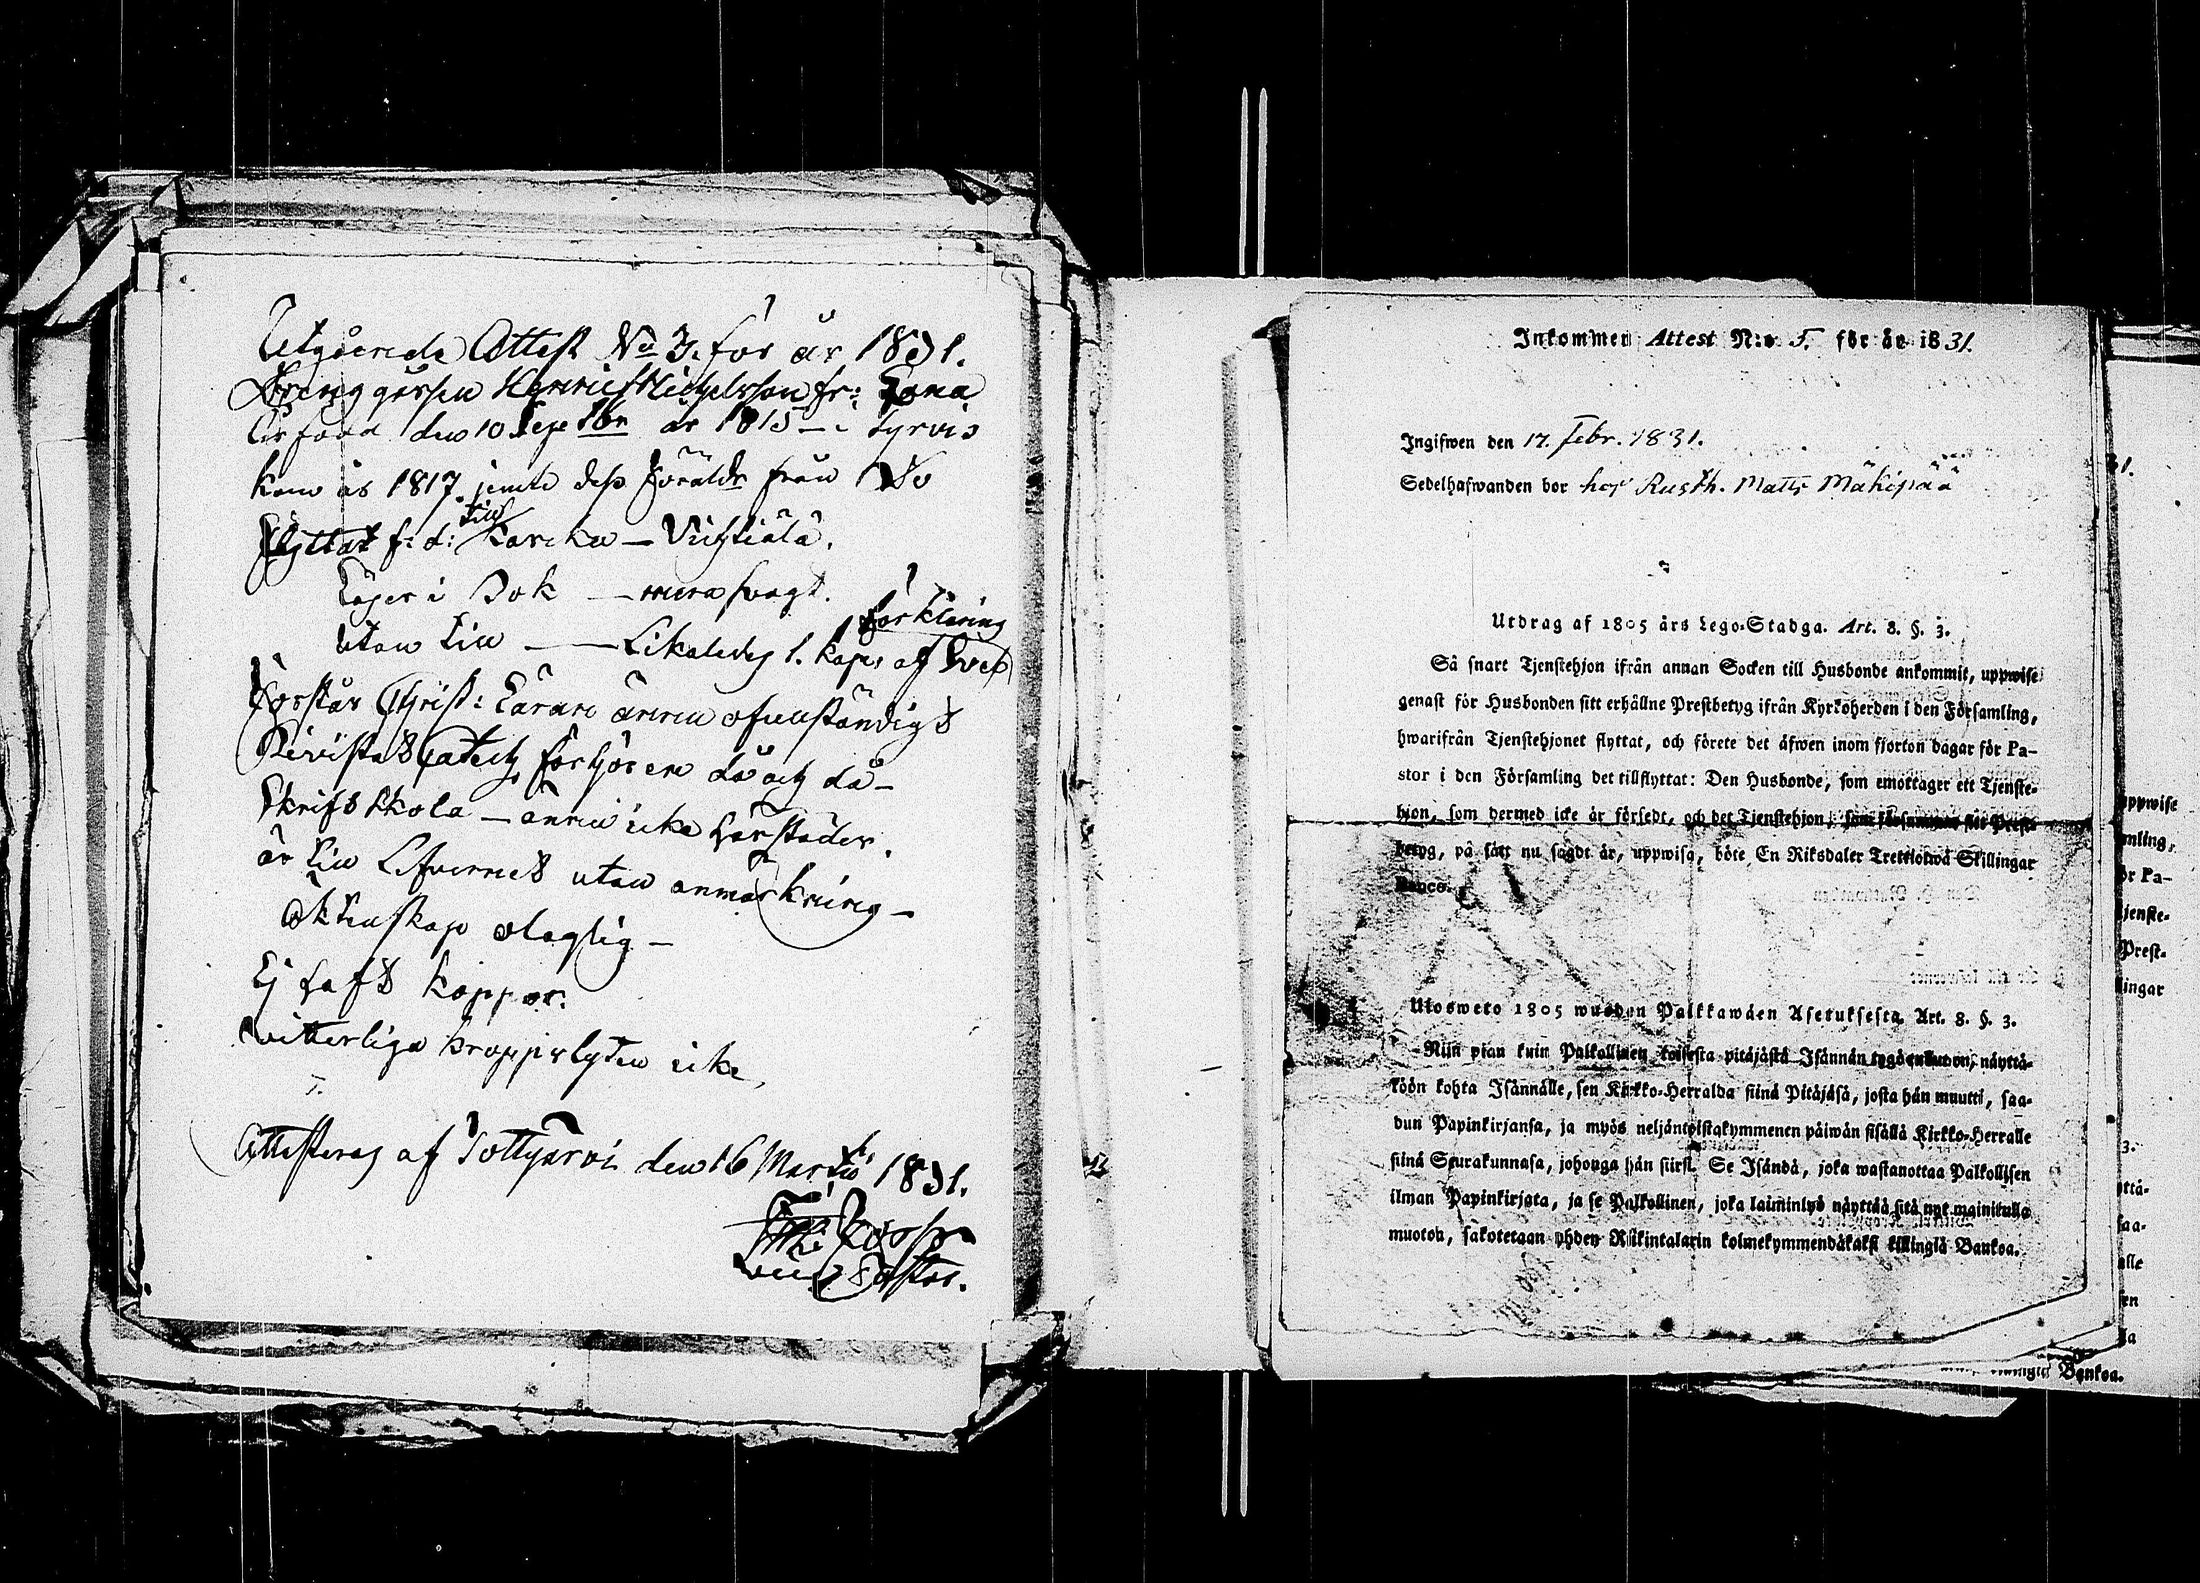 Utgående Attest No 3. för år 1831.
Drenggåssen Henric Michelsson fr:
är född den 10 Septebr år 1815 – i Tyrvis
kom år 1817. jemte dess Föräldr från
Flyttat f: d: till Karcku –
Läser i Bok – svagt.
utan Till – Likaledes l. kapit af Sveb förklaring
Förstår Christ: Läran ännu ofullständigt
Bevistat Catech förhören då och då –
Skriftskola – ännu icke
är till Lefvernet utan anmärkning –
Äktenskap olaglig –
Ej haft koppor.
vitterliga kroppslyten icke,
Attesteras af Tottijärvi den 16 Martii 1831.
Pastor.
Inkommen Attest N:o 5. för år 1831.
Ingifwen den 17. Febr. 1831.
Sedelhafwanden bor hos Rusth. Matts Mäkipää
Utdrag af 1805 års Lego-Stadga. Art. 8. §. 3.
Så snart Tjenstehjon ifrån annan Socken till Husbonde ankommit, uppwise
genast för Husbonden sitt erhållne Prestbetyg ifrån Kyrkoherden i den Församling,
hwarifrån Tjenstehjonet flyttat, och förete det äfwen inom fjorton dagar för Pa-
stor i den Församling det tillflyttat: Den Husbonde, som emottager ett Tjenste-
hjon, som dermed icke är försedt, och det Tjenstehjon, som försummar sitt Prest-
betyg, på sätt nu sagdt är, uppwisa, böte En Riksdaler Trettiotwå Skillingar
Banco.
Ulosweto 1805 wuoden Palkkawäen Asetuksesta. Art. 8. §. 3.
Niin pian kuin Palkollinen toisesta pitäjästä Isännän tygö tullut on, näyttä-
köön kohta Isännälle, sen Kirkko-Herralda siinä Pitäjäsä, josta hän muutti, saa-
dun Papinkirjansa, ja myös neljäntoistakymmenen päiwän sisällä Kirkko-Herralle
siinä Seurakunnasa, johonga hän siirsi. Se Isändä, joka wastanottaa Palkollisen
ilman Papinkirjata, ja se Palkollinen, joka laiminlyö näyttää sitä nyt mainitulla
muotou, sakotetaan yhden Riikintalarin kolmekymmendäkaksi killingiä Bankoa.
31.
uppwise
mling,
ör Pa-
jenste-
Prest-
lingar
3.
yttä-
saa-
alle
sen
lla
Bankoa.